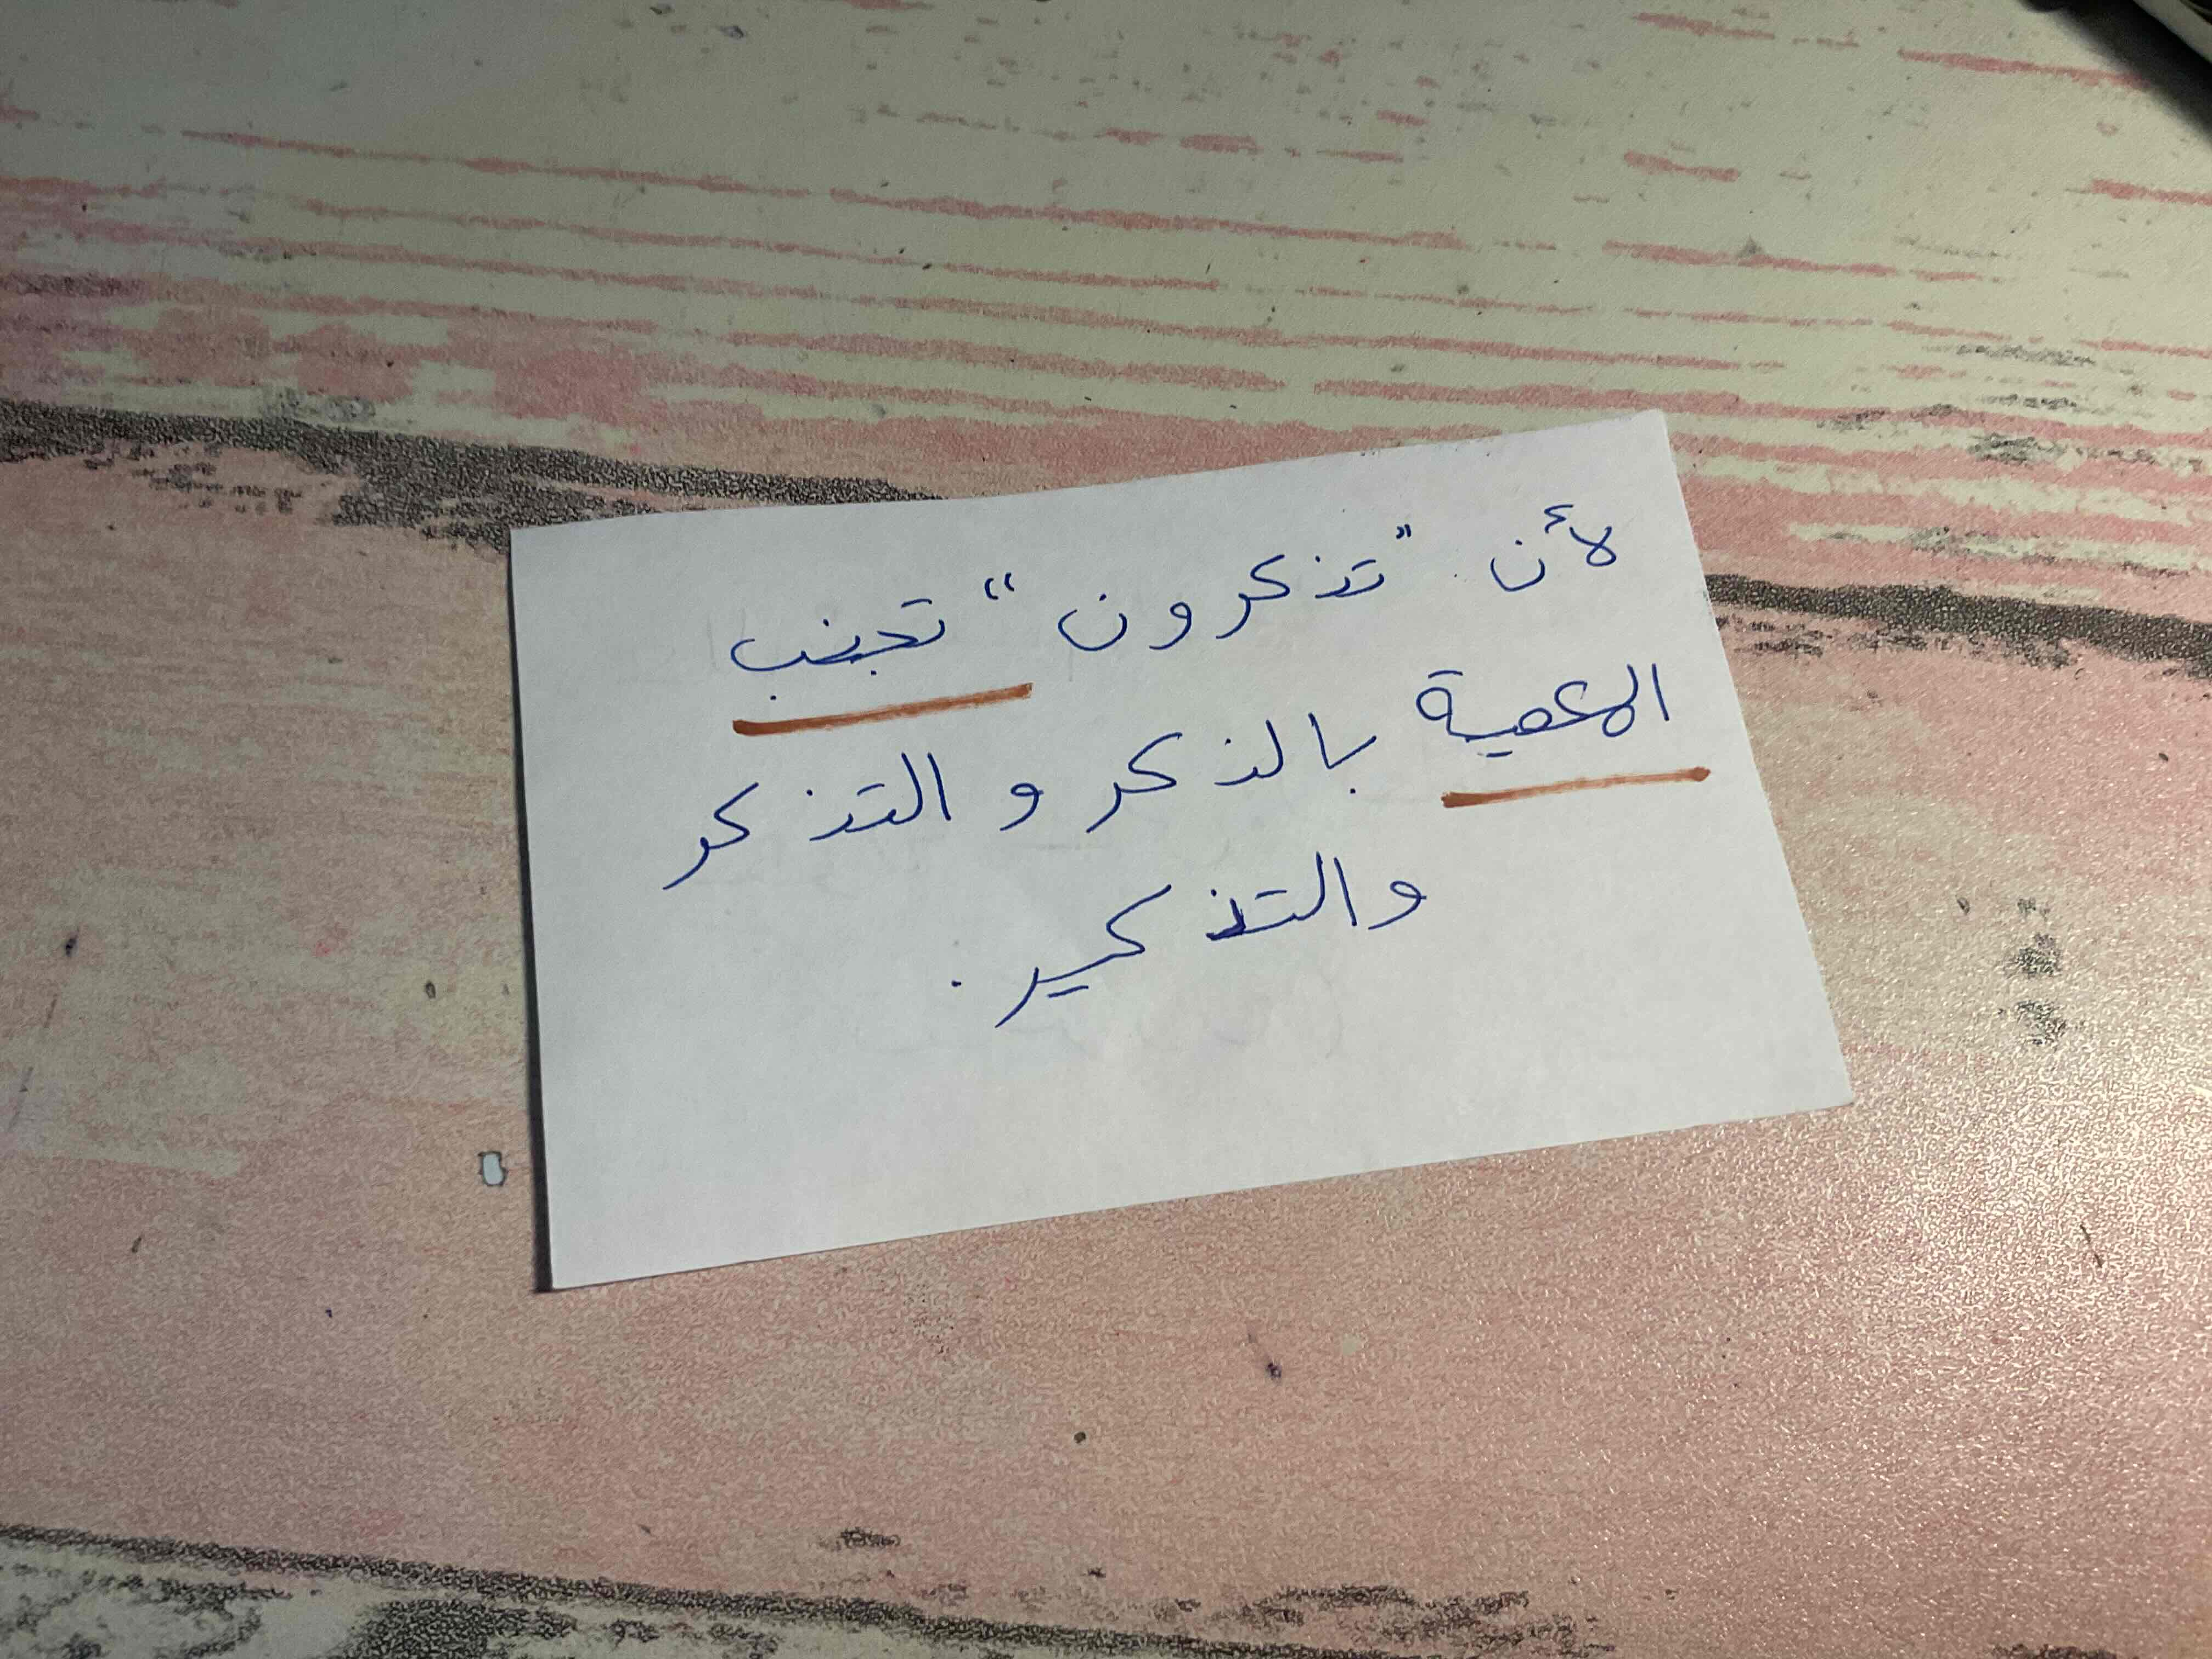 لأن "تذكرون" تجنب
المعصية بالذكر و التذكر
والتذكير.